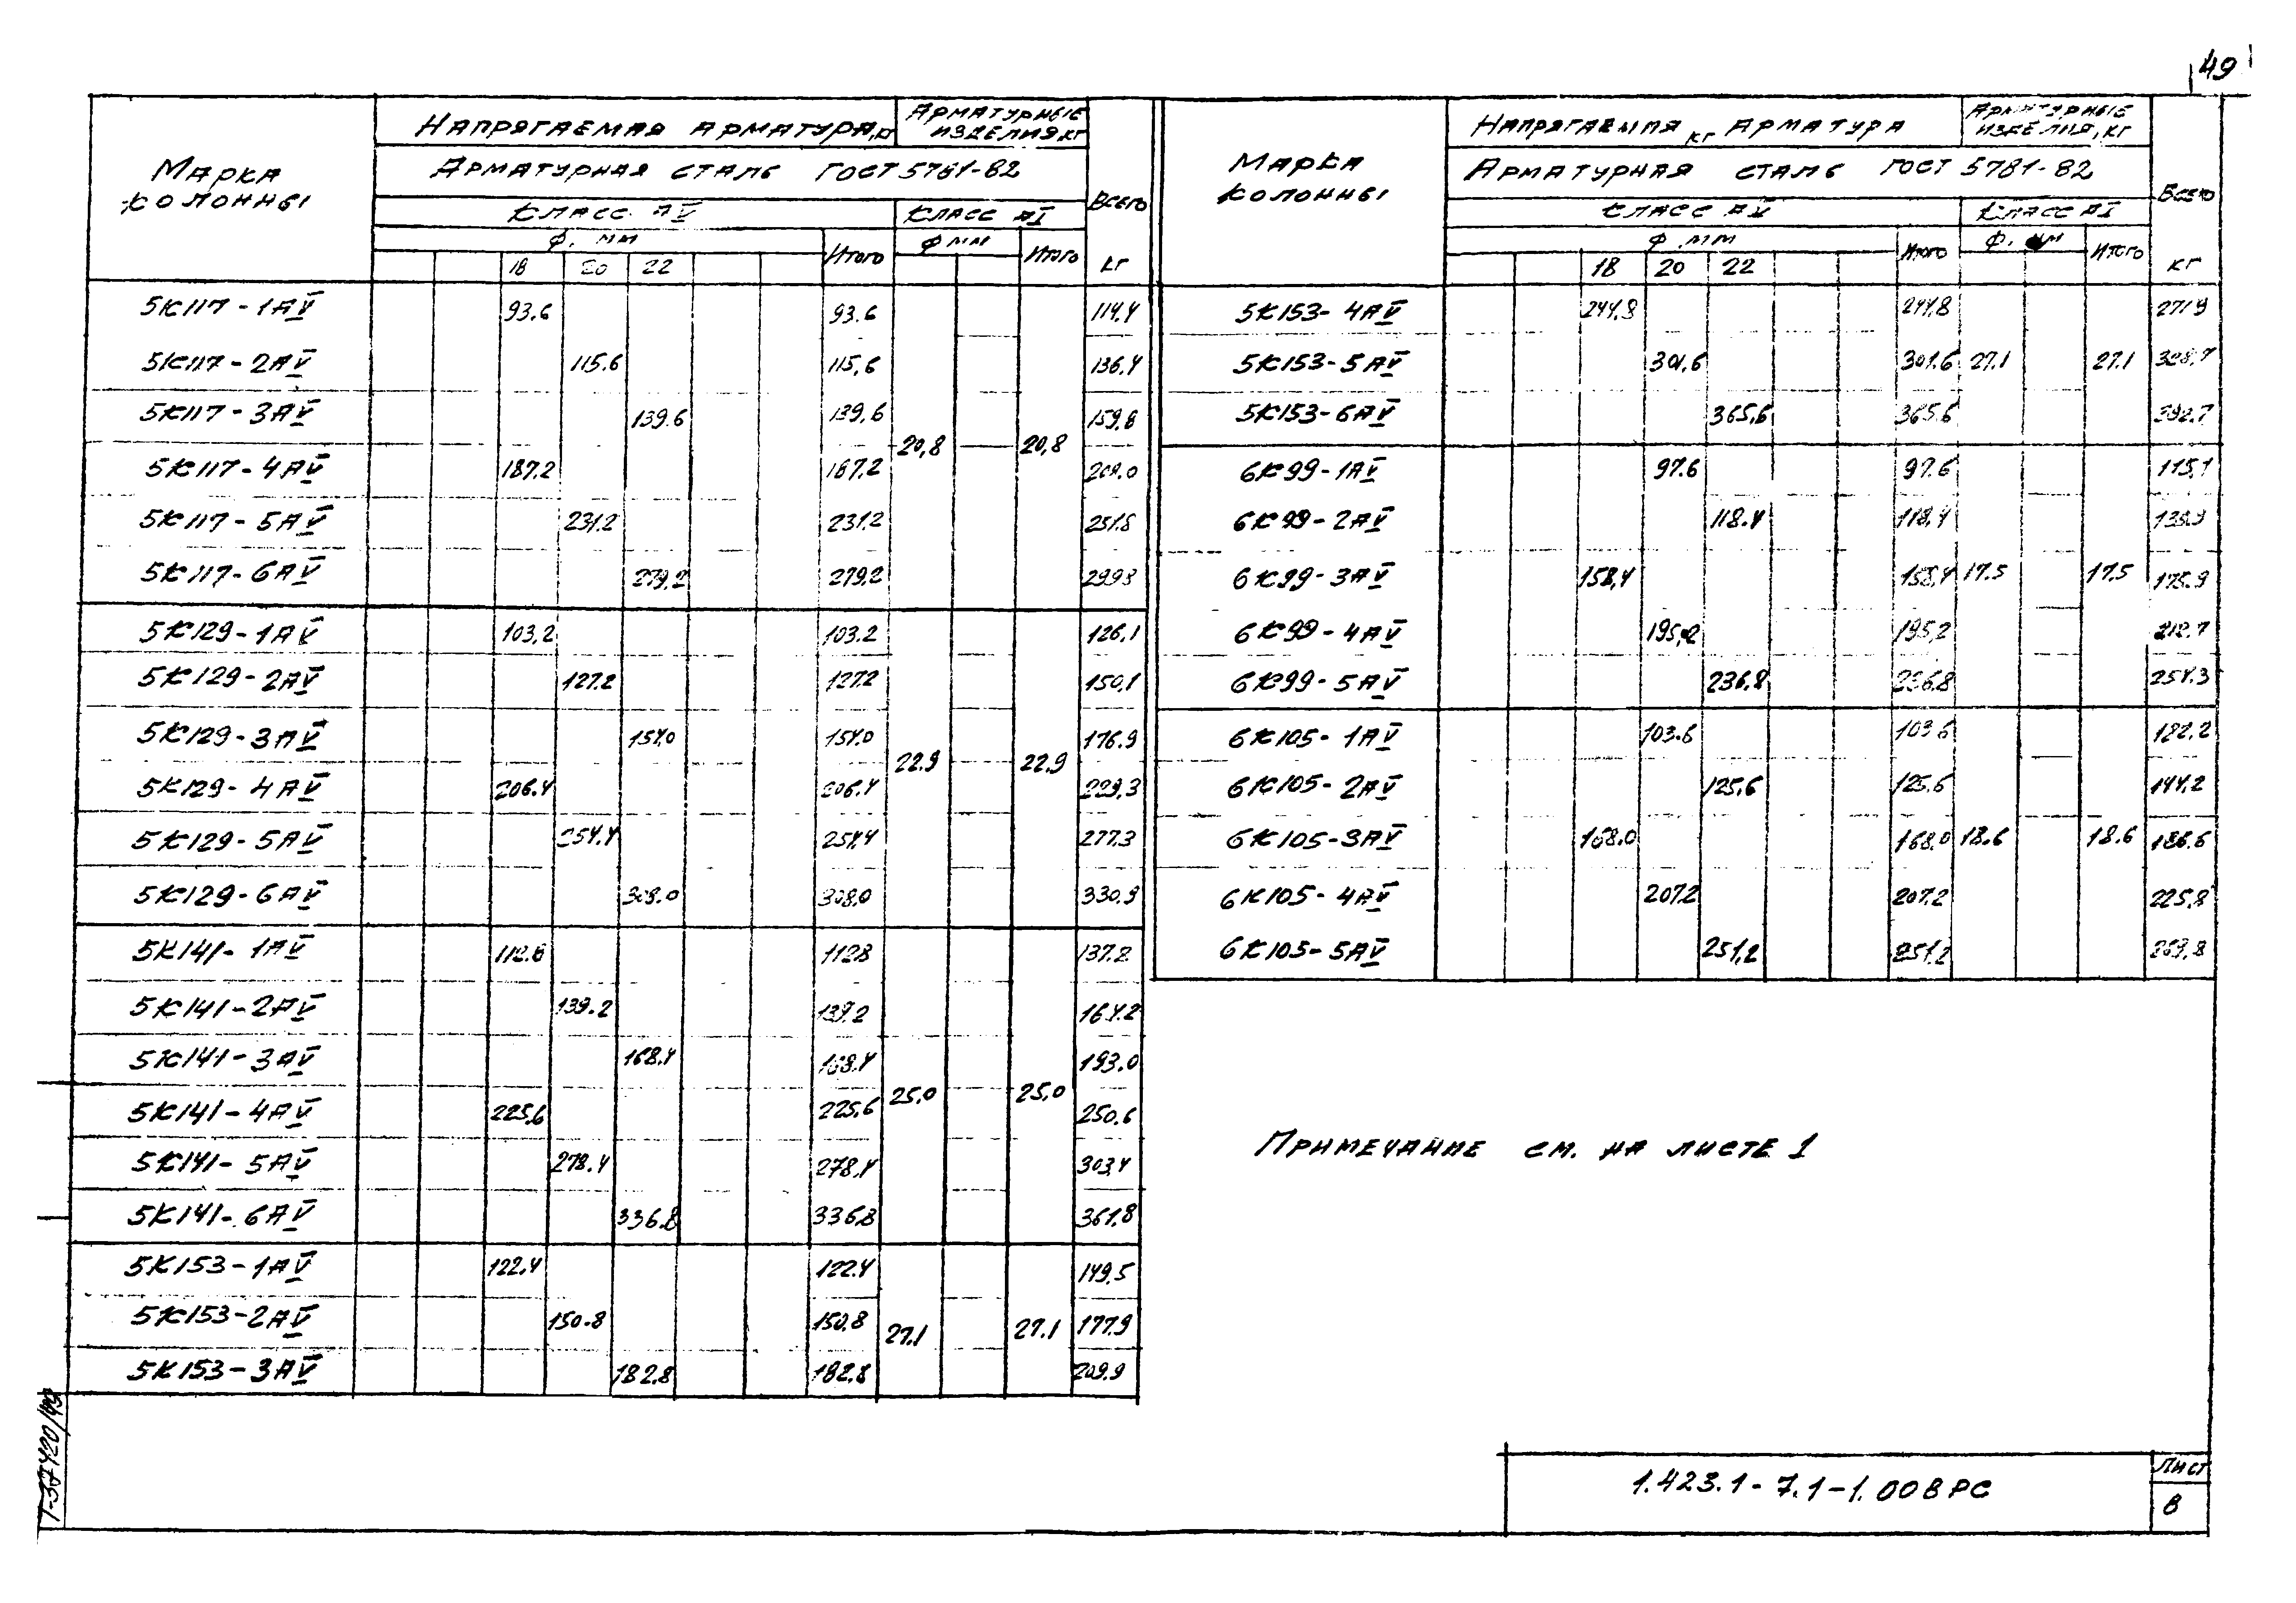 49
Марка колонны | Напрягаемая арматура, кг | Арматурные изделия кг | Всего кг
Арматурная сталь ГОСТ 5781-82
Класс АV | Класс АI
Ф. мм | Итого | Ф мм | Итого
18 | 20 | 22
5К117-1АV | 93.6 | 93.6 | 114.4
5К117-2АV | 115.6 | 115,6 | 136.4
5К117-3АV | 139.6 | 139,6 | 159,8
20,8 | 20,8
5К117-4АV | 187.2 | 187.2 | 208.0
5К117-5АV | 231.2 | 231.2 | 251.8
5К117-6АV | 279.2 | 279.2 | 299.8
5К129-1АV | 103,2 | 103.2 | 126,1
5К129-2АV | 127.2 | 127.2 | 150,1
5К129-3АV | 154.0 | 154.0 | 176.9
22.9 | 22.9
5К129-4АV | 206.4 | 206.4 | 229,3
5К129-5АV | 254.4 | 254.4 | 277.3
5К129-6АV | 308.0 | 308.0 | 330.9
5К141-1АV | 112.8 | 112.8 | 137.8
5К141-2АV | 139.2 | 139.2 | 164.2
5К141-3АV | 168.4 | 168.4 | 193.0
25,0 | 25,0
5К141-4АV | 225.6 | 225,6 | 250.6
5К141-5АV | 278.4 | 278.4 | 303.4
5К141-6АV | 336.8 | 336.8 | 361.8
5К153-1АV | 122.4 | 122.4 | 149.5
5К153-2АV | 150.8 | 150.8 | 27.1 | 27.1 | 177.9
5К153-3АV | 182.8 | 182.8 | 209.9
Марка колонны | Напрягаемая арматура кг | Арматурные изделия, кг | Всего кг
Арматурная сталь ГОСТ 5781-82
Класс АV | Класс АI
Ф. мм | Итого | Ф. мм | Итого
18 | 20 | 22
5К153-4АV | 244.8 | 244.8 | 271.9
5К153-5АV | 301,6 | 301.6 | 27.1 | 27.1 | 328.7
5К153-6АV | 365,6 | 365.6 | 392.7
6К99-1АV | 97.6 | 97.6 | 115,1
6К99-2АV | 118.4 | 118,4 | 135.9
6К99-3АV | 158,4 | 158,4 | 17.5 | 17.5 | 175.9
6К99-4АV | 195,2 | 195,2 | 212.7
6К99-5АV | 236,8 | 236.8 | 254.3
6К105-1АV | 103.6 | 103.6 | 122.2
6К105-2АV | 125,6 | 125,6 | 144,2
6К105-3АV | 168.0 | 168,0 | 18.6 | 18.6 | 186.6
6К105-4АV | 207.2 | 207.2 | 225.8
6К105-5АV | 251,2 | 251.2 | 269,8
Примечание см. на листе 1
1.423.1-7.1-1.008РС
Лист
8
Т-37420/49